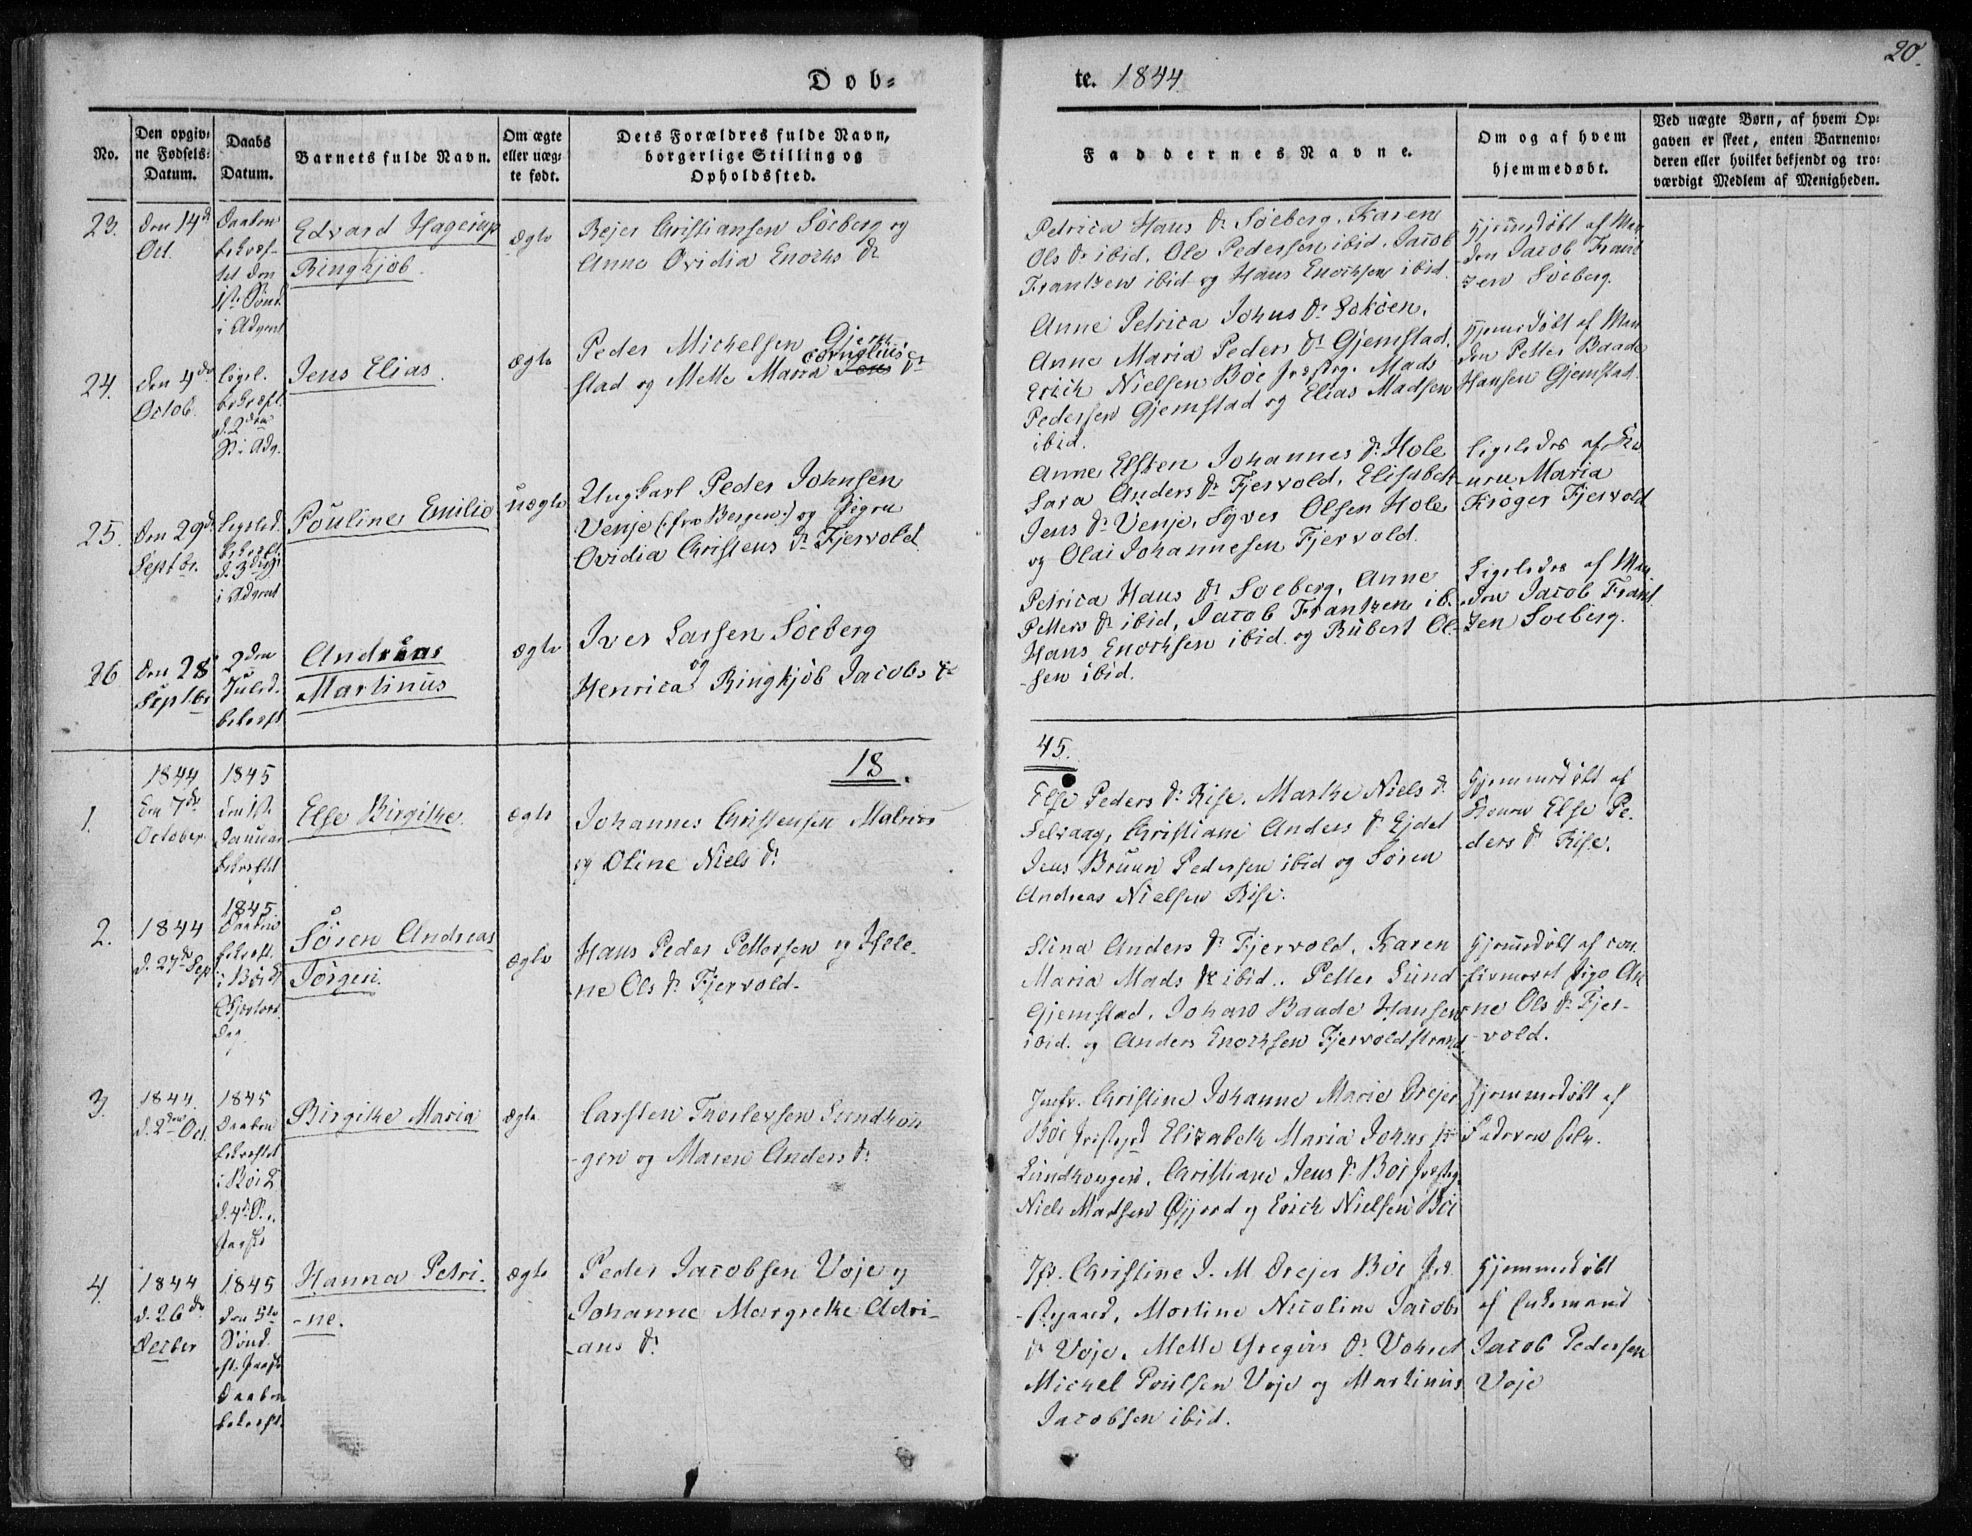 20.
Døb-
te. 1844
No.
Den opgiv-
ne Fødsels-
Datum.
Daabs
Datum.
Barnets fulde Navn.
Om ægte
eller uæg-
te født.
Dets Forældres fulde Navn,
borgerlige Stilling og
Opholdssted.
Faddernes Navne.
Om og af hvem
hjemmedøbt.
Ved uægte Børn, af hvem Op-
gaven er skeet, enten Barnemo-
deren eller hvilket bekjendt og tro-
værdigt Medlem af Menigheden.
23.
den 14d
Oct.
Daaben
bekræf-
tet den
1ste Sønd.
i Advent
Edvard Hagerup
Ringkjøb.
ægte
Bejer Christiansen Søeberg og
Anne Ovidia Enochs Dr
Petrica Hans Dr Søeberg, Karen
Ols Dr ibid, Ole Pedersen ibid, Jacob
Frantzen ibid og Hans Enochsen ibid.
Hjemmedøbt af Man-
den Jacob Frant-
zen Søeberg.
24.
den 4de
Octob.
ligel.
bekræft.
d. 2den
S. i Adv.
Jens Elias.
ægte
Peder Michelsen Gjem-
stad og Mette Maria Cornelius Dr
Anne Petrica Johns Dr
Anne Maria Peders Dr Gjemstad,
Erich Nielsen Bøe Præstg. Mads
Pedersen Gjemstad og Elias Madsen
ibid.
Hjemmedøbt af Man-
den Petter Baade
Hansen Gjemstad.
25.
den 29d
Septbr.
Ligeled.
bekræft.
i Advent
Pouline Emilie
uægte
Ungkarl Peder Johnsen
Venje (fra Bergen) og Pigen
Ovidia Christens Dr Fjervold.
Anne Elsken Johannes Dr Hole
Sara Anders Dr Fjervold, Elisabeth
Jens Dr Venje, Syver Olsen Hole
og Olai Johannesen Fjervold.
Ligeledes af Ko-
nen Maria
Krøger Fjervold
26
den 28
Septbr
2den
Juled.
bekræft.
Andreas
Martinus
ægte
Iver Larsen Søeberg
og
Henrica Ringkjøb Jacobs Dr
Petrica Hans Dr Søeberg, Anne
Petters Dr ibid, Jacob Frantzen ib.
Hans Enochsen ibid. og Rubert Ol-
sen ibid.
Ligeledes af Man-
den Jacob Frant-
zen Søeberg.
18
45.
1.
1844
den 7de
October
1845
den 1ste
Januar
bekræftet
Else Birgithe
ægte
Johannes Christensen
og Oline Niels Dr
Else Peders Dr Rise, Marthe Niels Dr
Selvaag, Christiane Anders Dr Ejdet
Jens Bruun Pedersen ibid og Søren
Andreas Nielsen Rise.
Hjemmedøbt af
Konen Else Pe-
ders Dr Rise.
2.
1844
d. 27de Sept
1845
Daaben
bekræft.
Søren Andreas
Jørgen.
ægte
Hans Peder Pettersen og Hele-
ne Ols Dr Fjervold.
Stina Anders Dr Fjervold, Karen
Maria Mads Dr ibid., Petter Lund
Gjemstad, Johan Baade Hansen
ibid. og Anders Enochsen Fjervoldstrand
Hjemmedøbt af con-
firmeret Pige An-
ne Ols Dr Fjer-
vold.
3.
1844
d. 2den Oct.
1845
Daaben
bekræftet
Birgithe Maria
ægte
Carsten Thorlevsen Sundhon-
gen og Maren Anders Dr
Jmfr. Christine Johanne Marie Drejer
Bøe Præsteg. Elisabeth Maria Johns Dr
Sundhongen, Christiane Jens Dr Bøe Præsteg.
Niels Madsen og Erich Nielsen Bøe
Hjemmedøbt af
Faderen selv.
4.
1844
d. 26de
October
1845
den 5te
Sønd.
Daaben
bekræft.
Hanna Petri-
ne.
ægte
Peder Jacobsen Voje og
Johanne Margrethe Adri-
ans Dr
Jfr. Christine J. M. Drejer Bøe Præ-
stegaard, Martine Nicoline Jacobs
Dr Voje, Mette Gregors Dr
Michel Poulsen Voje og Martinus
Jacobsen ibid.
Hjemmedøbt
af Enkemand
Jacob Pedersen
Voje